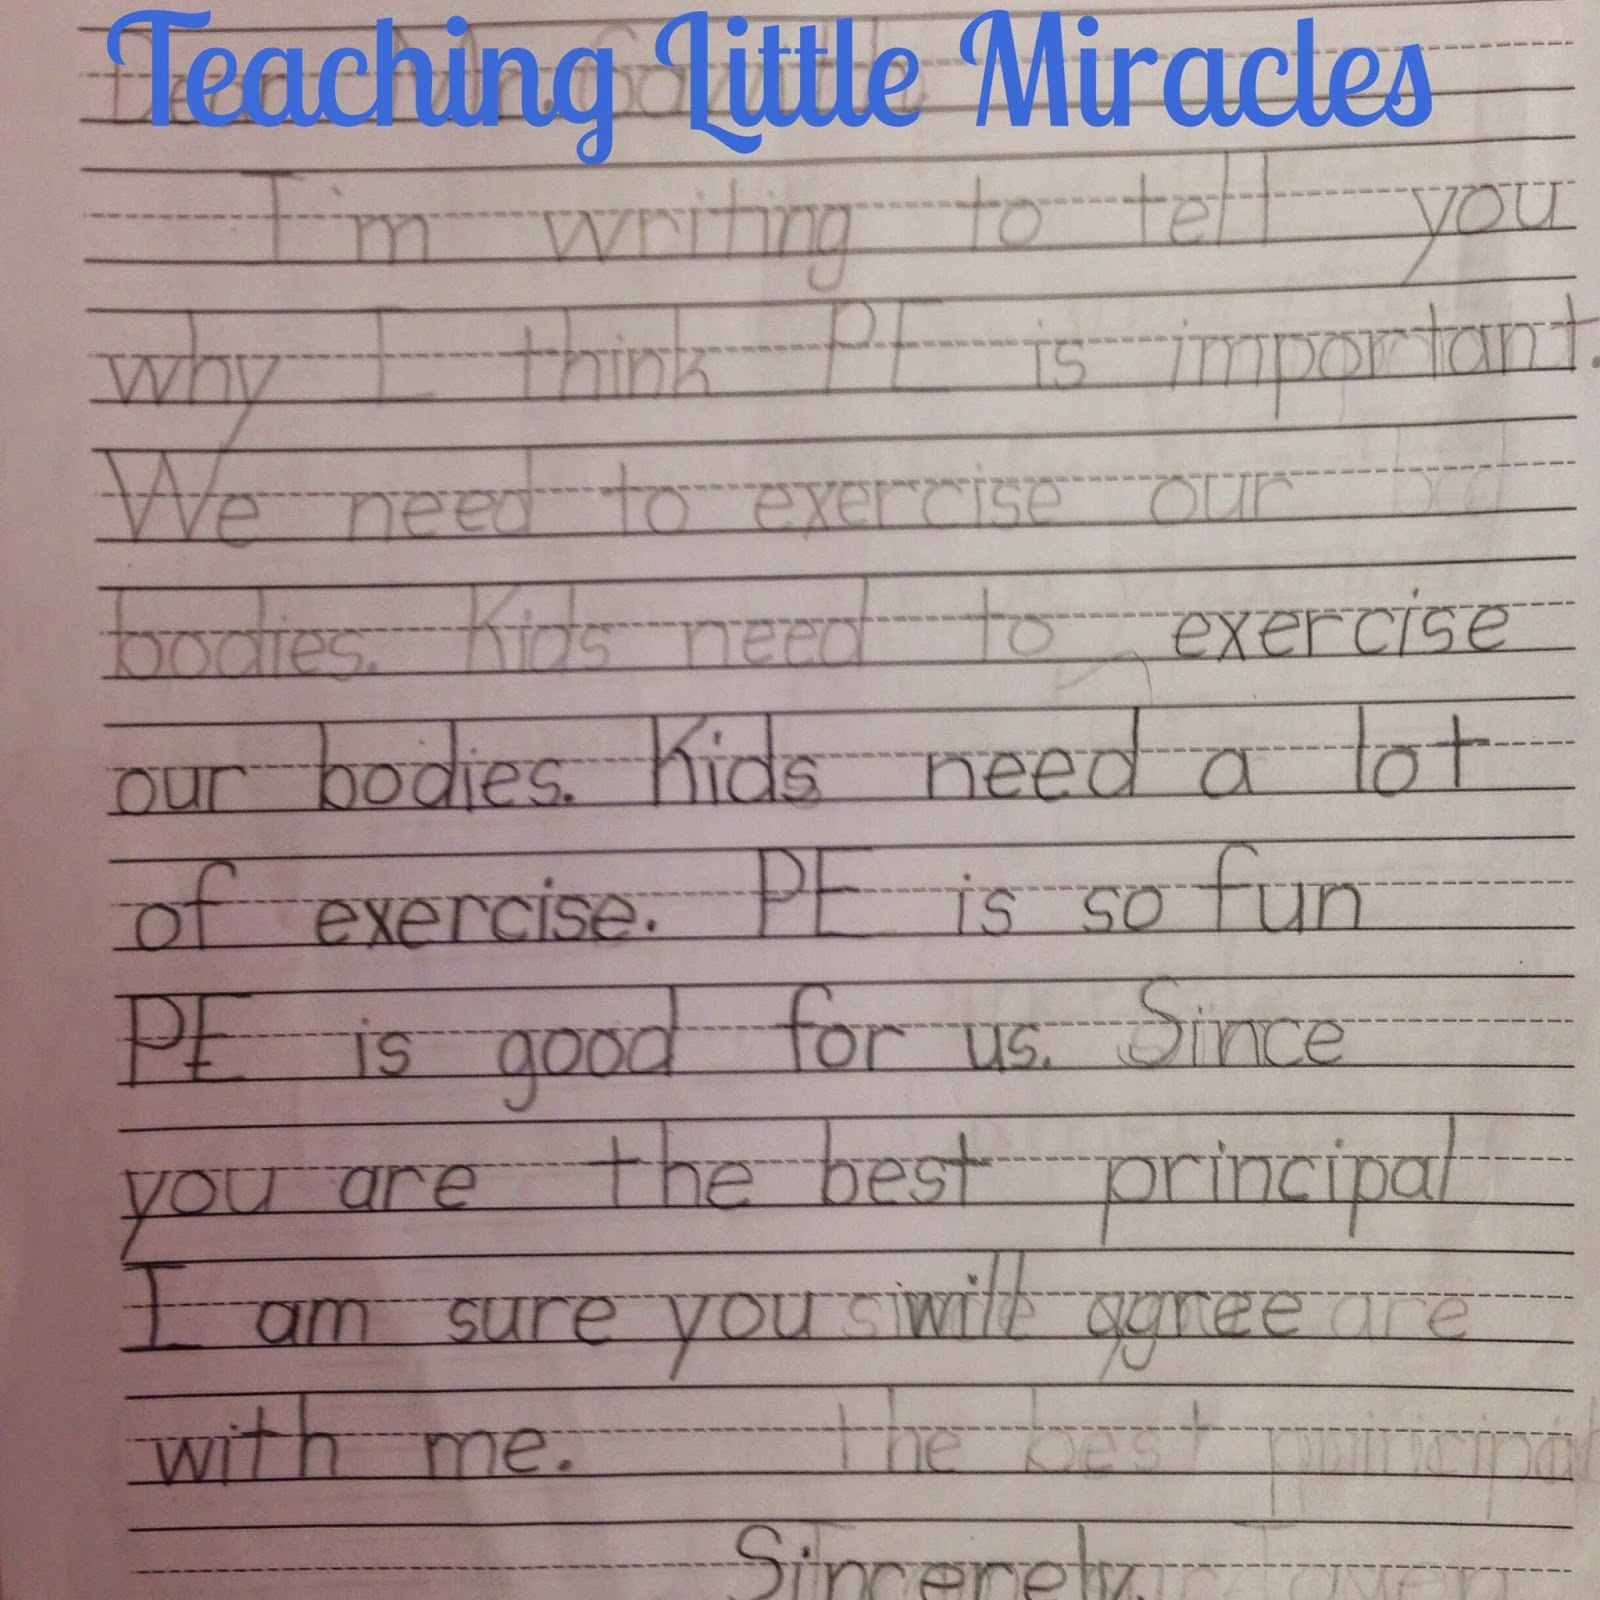 Teaching Little Miracles
I'm writing to tell you
why I think PE is important.
We need to exercise our
bodies. Kids need to exercise
our bodies. Kids need a lot
of exercise. PE is so fun
PE is good for us. Since
you are the best principal
I am sure you will agree are
with me. the best principal
Sincerely,